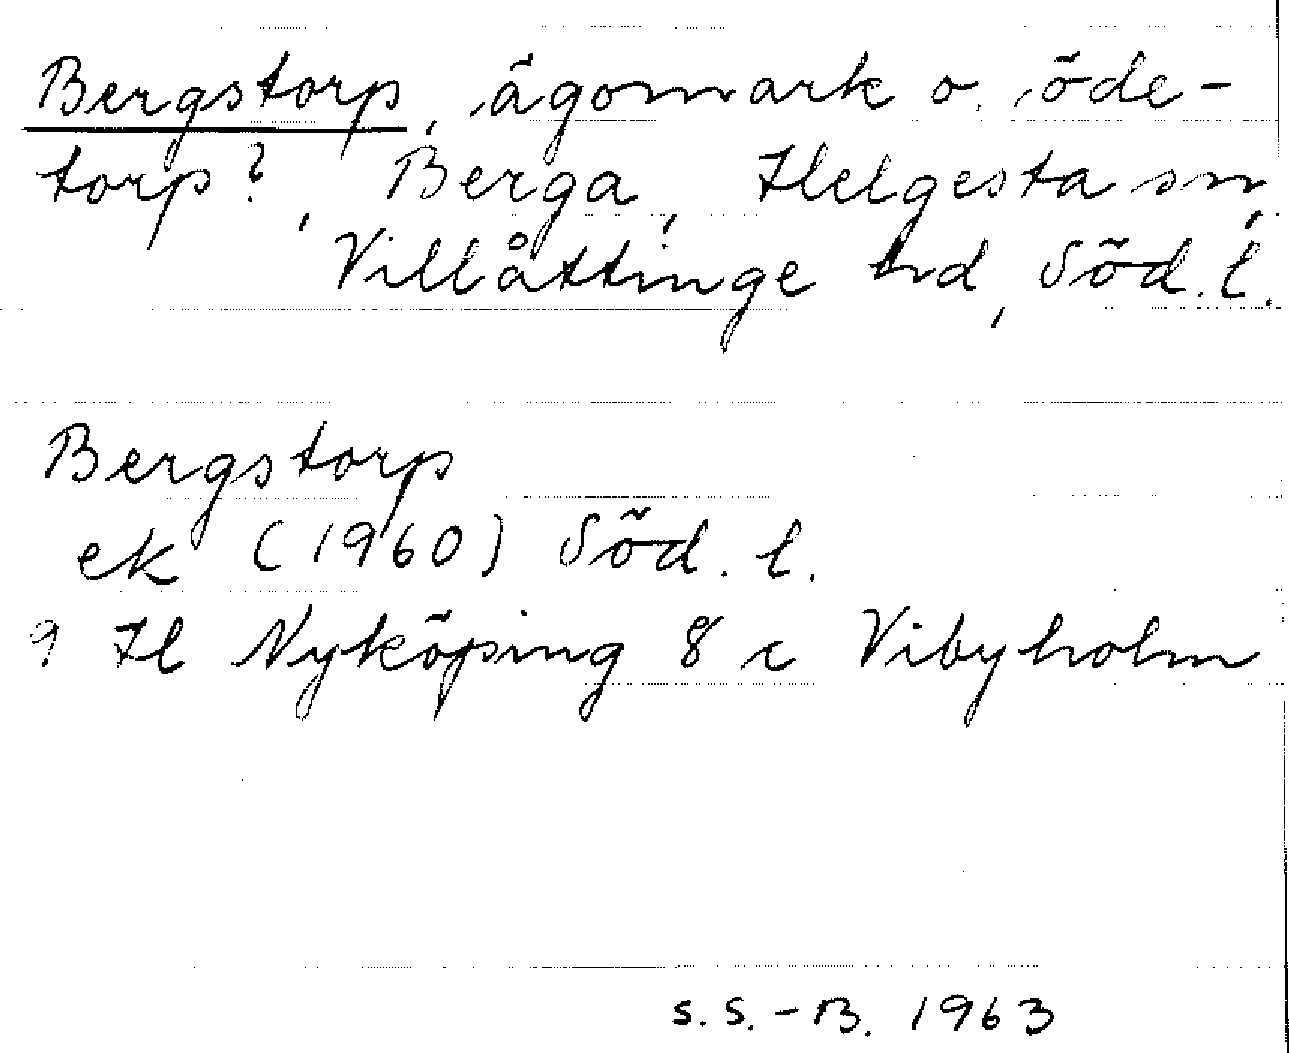 Bergstorp, ägomark o. öde-
torp?, Berga, Helgesta sn,
Villåttinge hd, Söd. l.
Bergstorp
ek (1960) Söd. l.
9 H Nyköping 8 c Vibyholm
S. S. - B. 1963